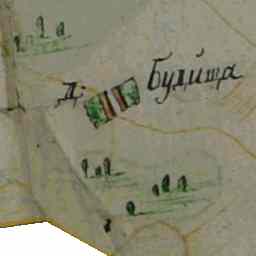 Д: Будища